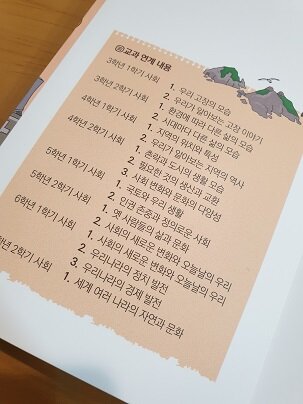 ◎교과 연계 내용
3학년 1학기 사회 1. 우리 고장의 모습
2. 우리가 알아보는 고장 이야기
3학년 2학기 사회 1. 환경에 따라 다른 삶의 모습
2. 시대마다 다른 삶의 모습
4학년 1학기 사회 1. 지역의 위치와 특성
2. 우리가 알아보는 지역의 역사
4학년 2학기 사회 1. 촌락과 도시의 생활 모습
2. 필요한 것의 생산과 교환
3. 사회 변화와 문화의 다양성
5학년 1학기 사회 1. 국토와 우리 생활
2. 인권 존중과 정의로운 사회
5학년 2학기 사회 1. 옛 사람들의 삶과 문화
2. 사회의 새로운 변화와 오늘날의 우리
6학년 1학기 사회 1. 사회의 새로운 변화와 오늘날의 우리
2. 우리나라의 정치 발전
3. 우리나라의 경제 발전
학년 2학기 사회 1. 세계 여러 나라의 자연과 문화